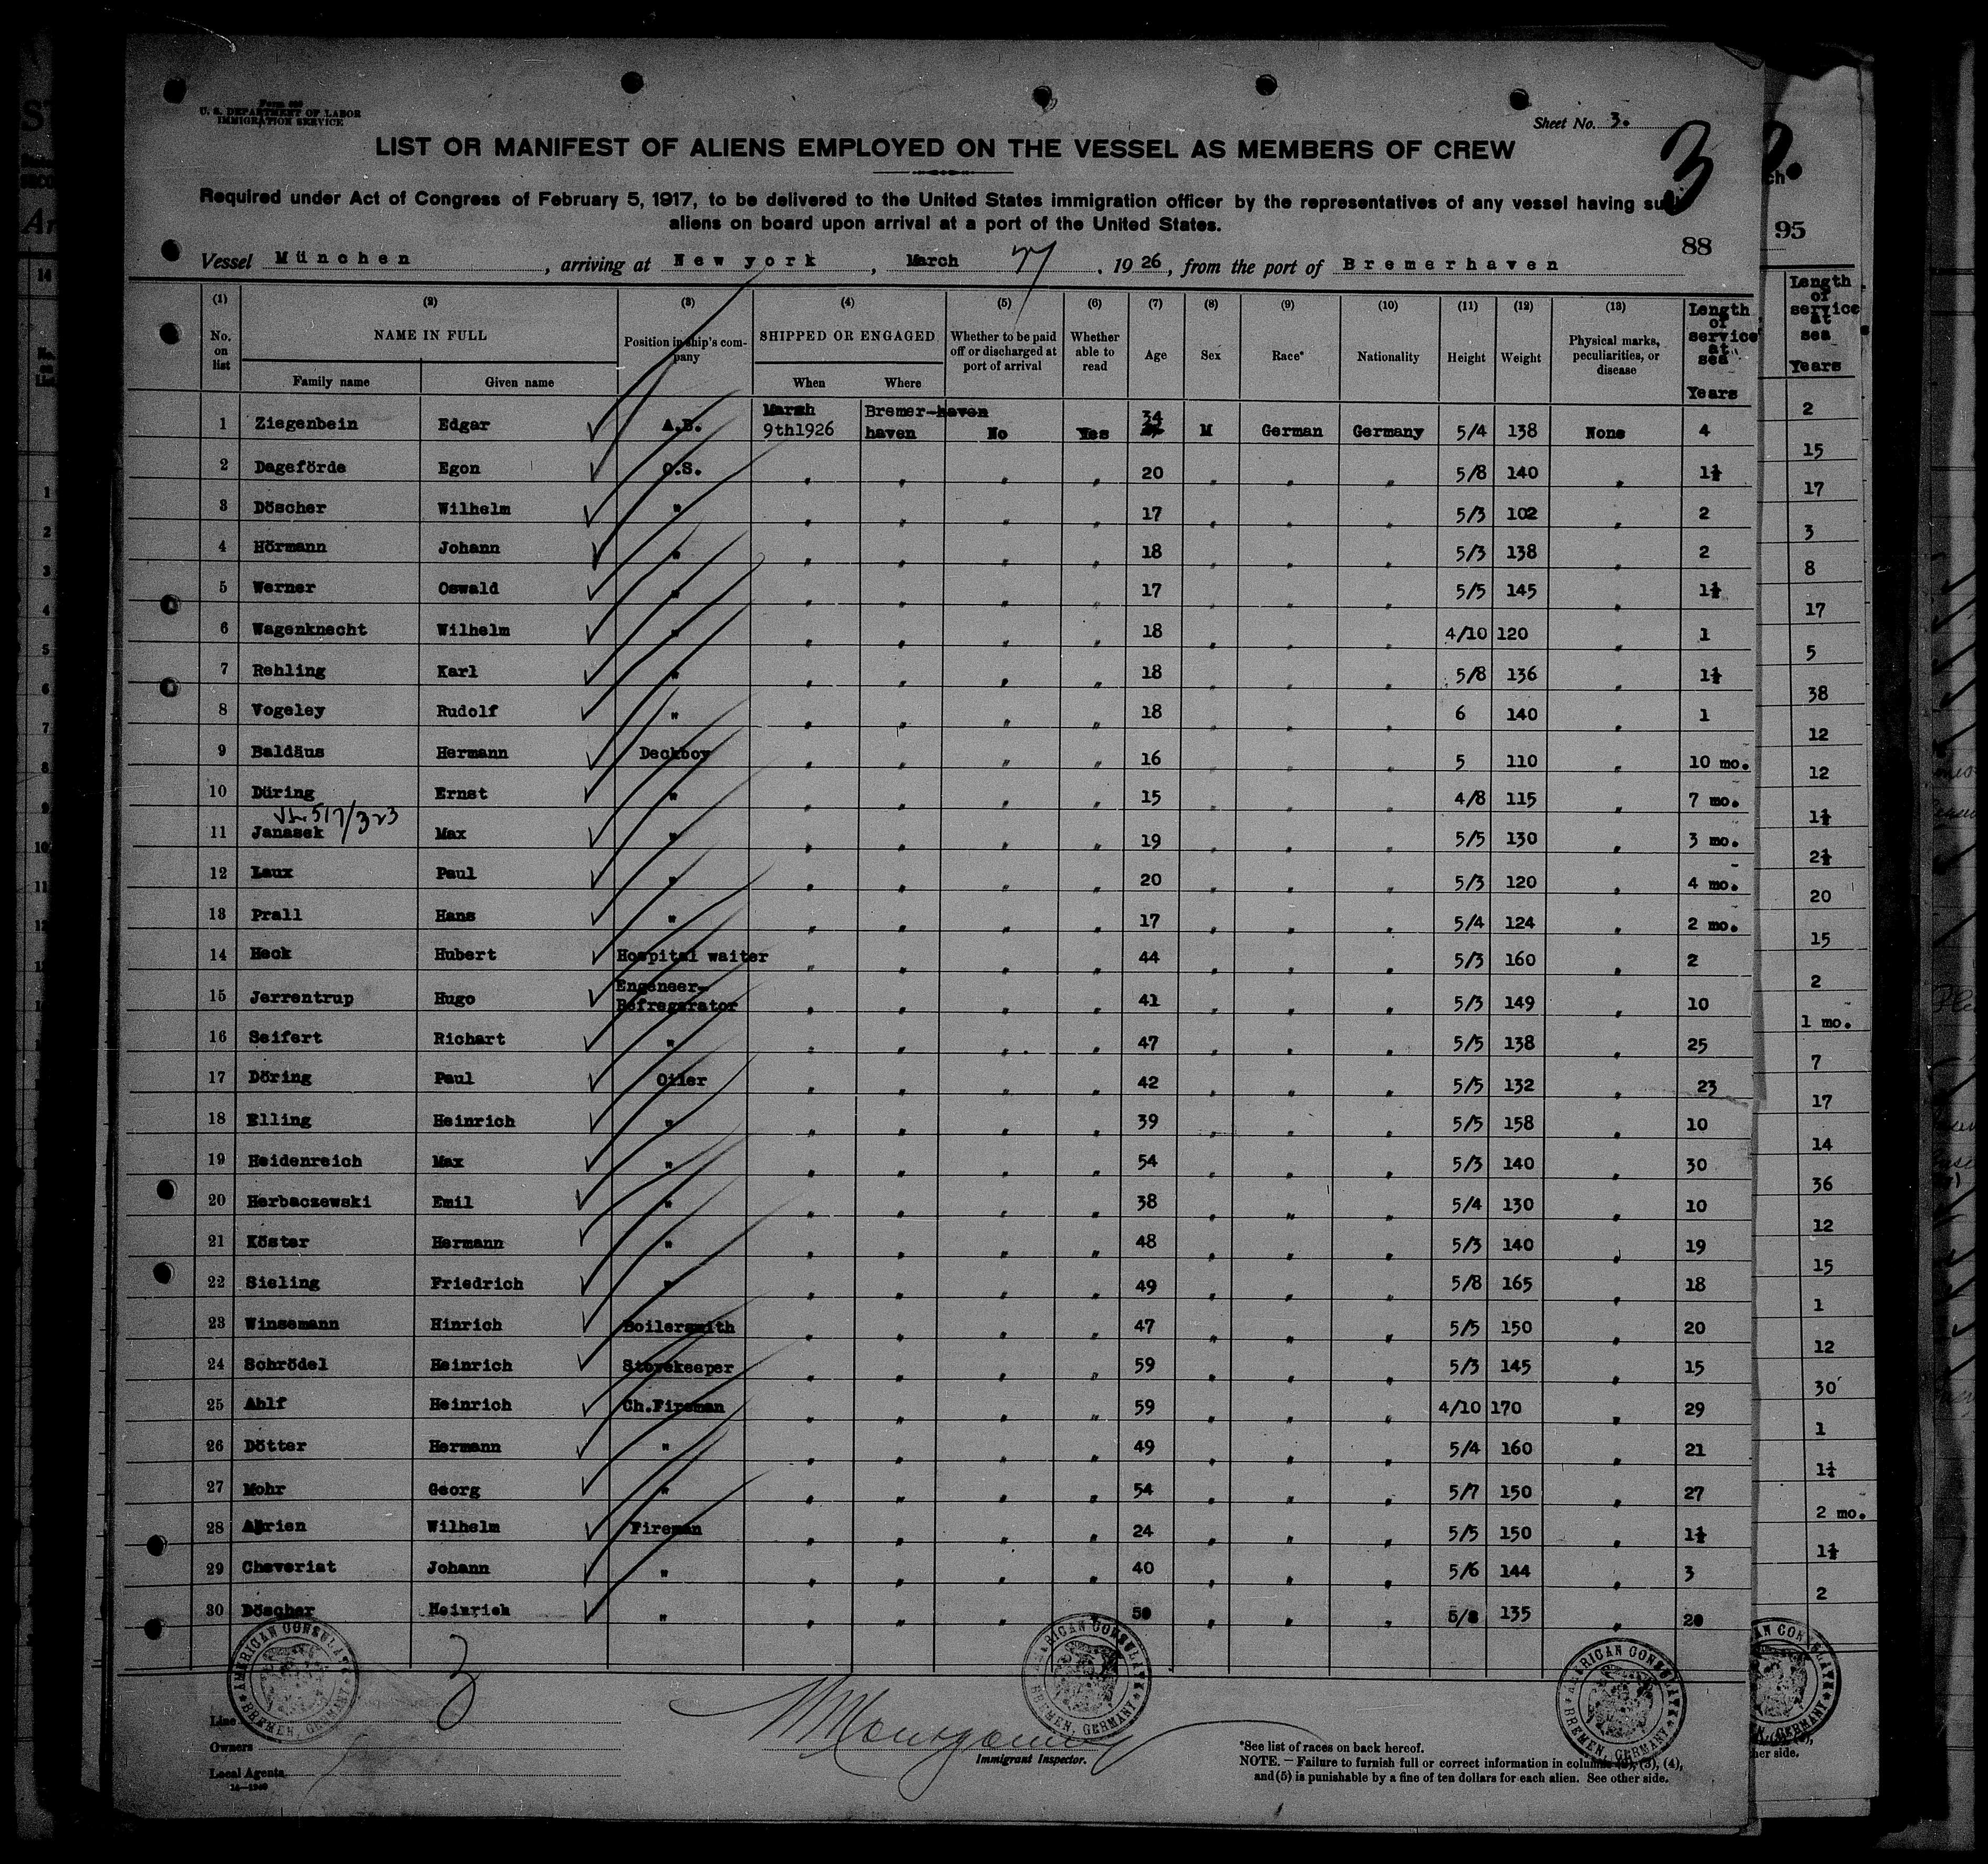 Form 689
U. S. DEPARTMENT OF LABOR
IMMIGRATION SERVICE
Sheet No. 3.
3
LIST OR MANIFEST OF ALIENS EMPLOYED ON THE VESSEL AS MEMBERS OF CREW
Required under Act of Congress of February 5, 1917, to be delivered to the United States immigration officer by the representatives of any vessel having such
aliens on board upon arrival at a port of the United States.
88
Vessel München, arriving at New york, March, 1926, from the port of Bremerhaven
(1) (2) (3) (4) (5) (6) (7) (8) (9) (10) (11) (12) (13)
No. on list NAME IN FULL Family name Given name Position in ship's company SHIPPED OR ENGAGED When Where Whether to be paid off or discharged at port of arrival Whether able to read Age Sex Race* Nationality Height Weight Physical marks, peculiarities, or disease Length of service at sea Years
1 Ziegenbein Edgar A.B. March 9th1926 Bremer-haven haven No Yes 34 M German Germany 5/4 138 None 4
2 Dageförde Egon O.S. " " " " 20 " " " 5/8 140 " 1½
3 Döscher Wilhelm " " " " " 17 " " " 5/3 102 " 2
4 Hörmann Johann " " " " " 18 " " " 5/3 138 " 2
5 Werner Oswald " " " " " 17 " " " 5/5 145 " 1½
6 Wagenknecht Wilhelm " " " " " 18 " " " 4/10 120 " 1
7 Rehling Karl " " " " " 18 " " " 5/8 136 " 1½
8 Vogeley Rudolf " " " " " 18 " " " 6 140 " 1
9 Baldäus Hermann Deckboy " " " " 16 " " " 5 110 " 10 mo.
10 Düring Ernst " " " " " 15 " " " 4/8 115 " 7 mo.
517/323
11 Janasek Max " " " " " 19 " " " 5/5 130 " 3 mo.
12 Laux Paul " " " " " 20 " " " 5/3 120 " 4 mo.
13 Prall Hans " " " " " 17 " " " 5/4 124 " 2 mo.
14 Heck Hubert Hospital waiter " " " " 44 " " " 5/3 160 " 2
15 Jerrentrup Hugo Engeneer-Refregerator " " " " 41 " " " 5/3 149 " 10
16 Seifert Richart " " " " " 47 " " " 5/5 138 " 25
17 Döring Paul Oiler " " " " 42 " " " 5/5 132 " 23
18 Elling Heinrich " " " " " 39 " " " 5/5 158 " 10
19 Heidenreich Max " " " " " 54 " " " 5/3 140 " 30
20 Herbaczewski Emil " " " " " 38 " " " 5/4 130 " 10
21 Köster Hermann " " " " " 48 " " " 5/3 140 " 19
22 Sieling Friedrich " " " " " 49 " " " 5/8 165 " 18
23 Winsemann Hinrich Boilersmith " " " " 47 " " " 5/5 150 " 20
24 Schrödel Heinrich Storekeeper " " " " 59 " " " 5/3 145 " 15
25 Ahlf Heinrich Ch.Fireman " " " " 59 " " " 4/10 170 " 29
26 Dötter Hermann " " " " " 49 " " " 5/4 160 " 21
27 Mohr Georg " " " " " 54 " " " 5/7 150 " 27
28 Wilhelm Fireman " " " " 24 " " " 5/5 150 " 1½
29 Chaveriat Johann " " " " " 40 " " " 5/6 144 " 3
30 Döscher Heinrich " " " " " 50 " " " 5/8 135 " 20
AMERICAN CONSULATE BREMEN, GERMANY
AMERICAN CONSULATE BREMEN, GERMANY
AMERICAN CONSULATE BREMEN, GERMANY
3
Line
Owners
Local Agents
Montgomery
Immigrant Inspector.
*See list of races on back hereof.
NOTE.—Failure to furnish full or correct information in columns (2), (3), (4),
and (5) is punishable by a fine of ten dollars for each alien. See other side.
95
Length of service at sea
Years
2
15
17
3
8
17
5
38
12
12
1½
2½
20
15
2
1 mo.
7
17
14
36
12
15
1
12
30
1
2 mo.
1½
2